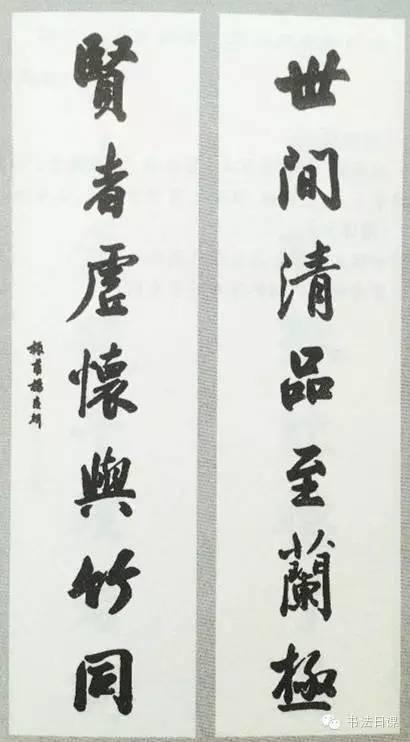 世間清品至蘭極
賢者虛懷與竹同
书法日课